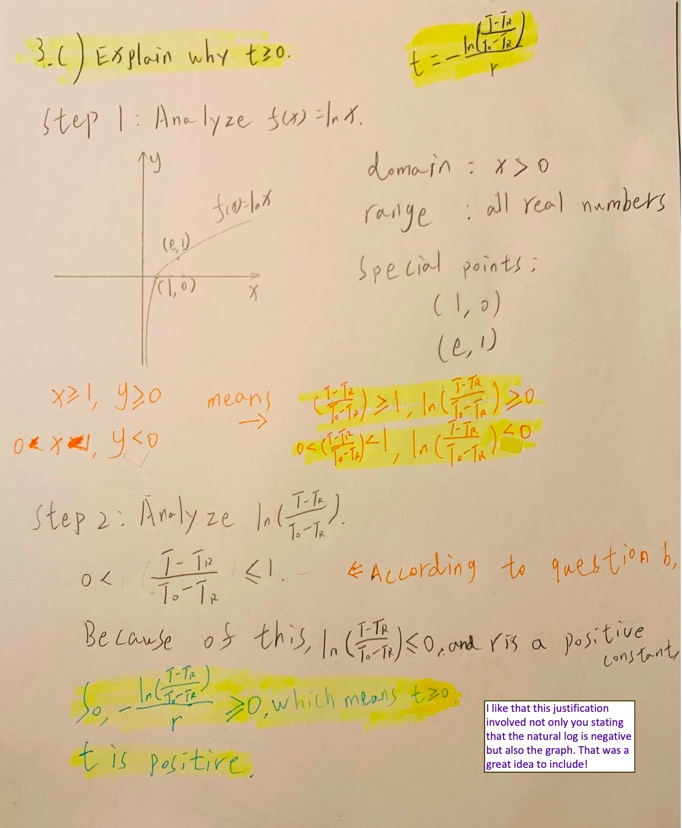 3.c) Explain why t≥0.
t = -ln((T-TR)/(T₀-TR))/r
Step 1: Analyze f(x)=lnx.
y
f(x)=lnx
(e,1)
(1,0)
x
domain : x>0
range : all real numbers
Special points:
(1,0)
(e,1)
x≥1, y≥0 means → ((T-TR)/(T₀-TR))≥1, ln((T-TR)/(T₀-TR))≥0
0<x<1, y<0 0<((T-TR)/(T₀-TR))<1, ln((T-TR)/(T₀-TR))<0
Step 2: Analyze ln((T-TR)/(T₀-TR)).
0< (T-TR)/(T₀-TR) ≤1. ⇐According to question b,
Because of this, ln((T-TR)/(T₀-TR))≤0, and r is a positive
constant,
So, -ln((T-TR)/(T₀-TR))/r ≥0, which means t≥0.
t is positive.
I like that this justification
involved not only you stating
that the natural log is negative
but also the graph. That was a
great idea to include!